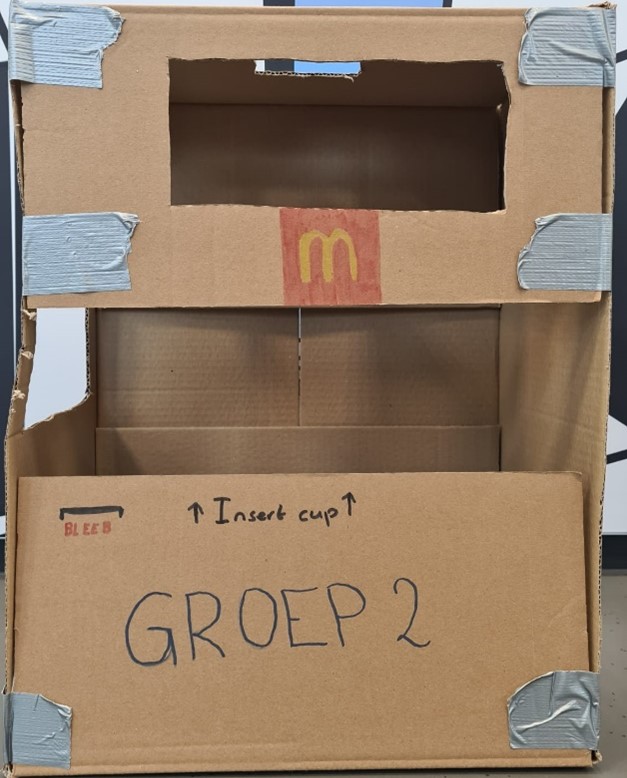 m
BLEEB
↑ Insert cup ↑
GROEP 2